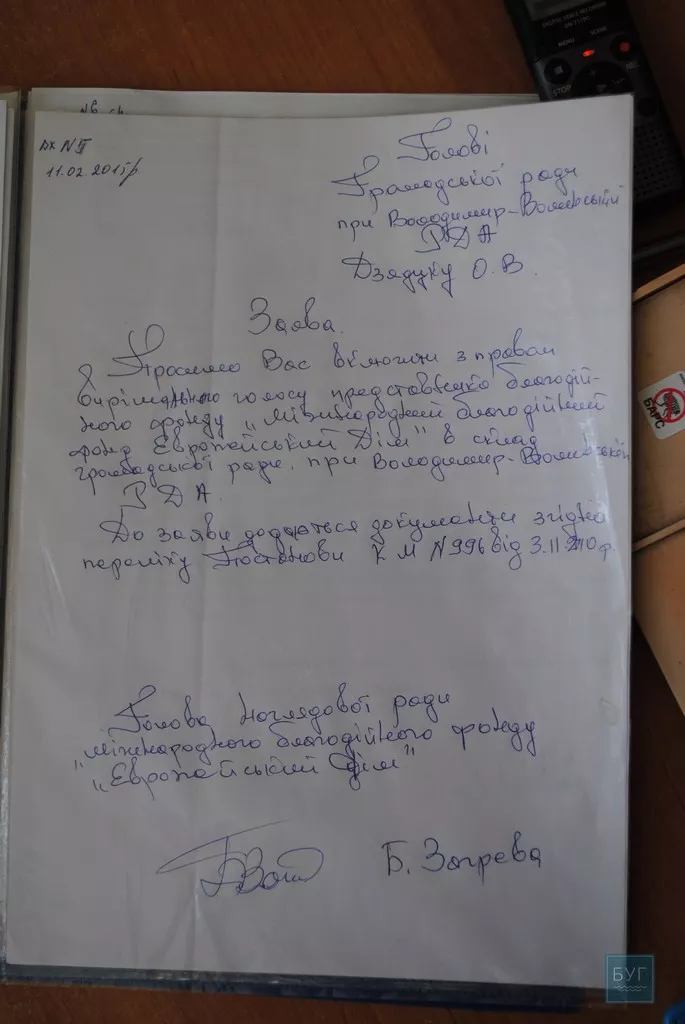 вх №5
11.02.2015р
Голові
Громадської ради
при Володимир-Волинській
РДА
Дзядуку О.В.
Заява.
Просимо Вас включити з правом
вирішального голосу представника благодій-
ного фонду „Міжнародний благодійний
фонд Європейський Дім" в склад
громадської ради при Володимир-Волинській
РДА.
До заяви додаються документи згідно
переліку Постанови КМ №996 від 3.11.2010р.
Голова наглядової ради
„Міжнародного благодійного фонду
„Європейський Дім"
Б. Загрева
MENU
STOP
БАРС
БУГ